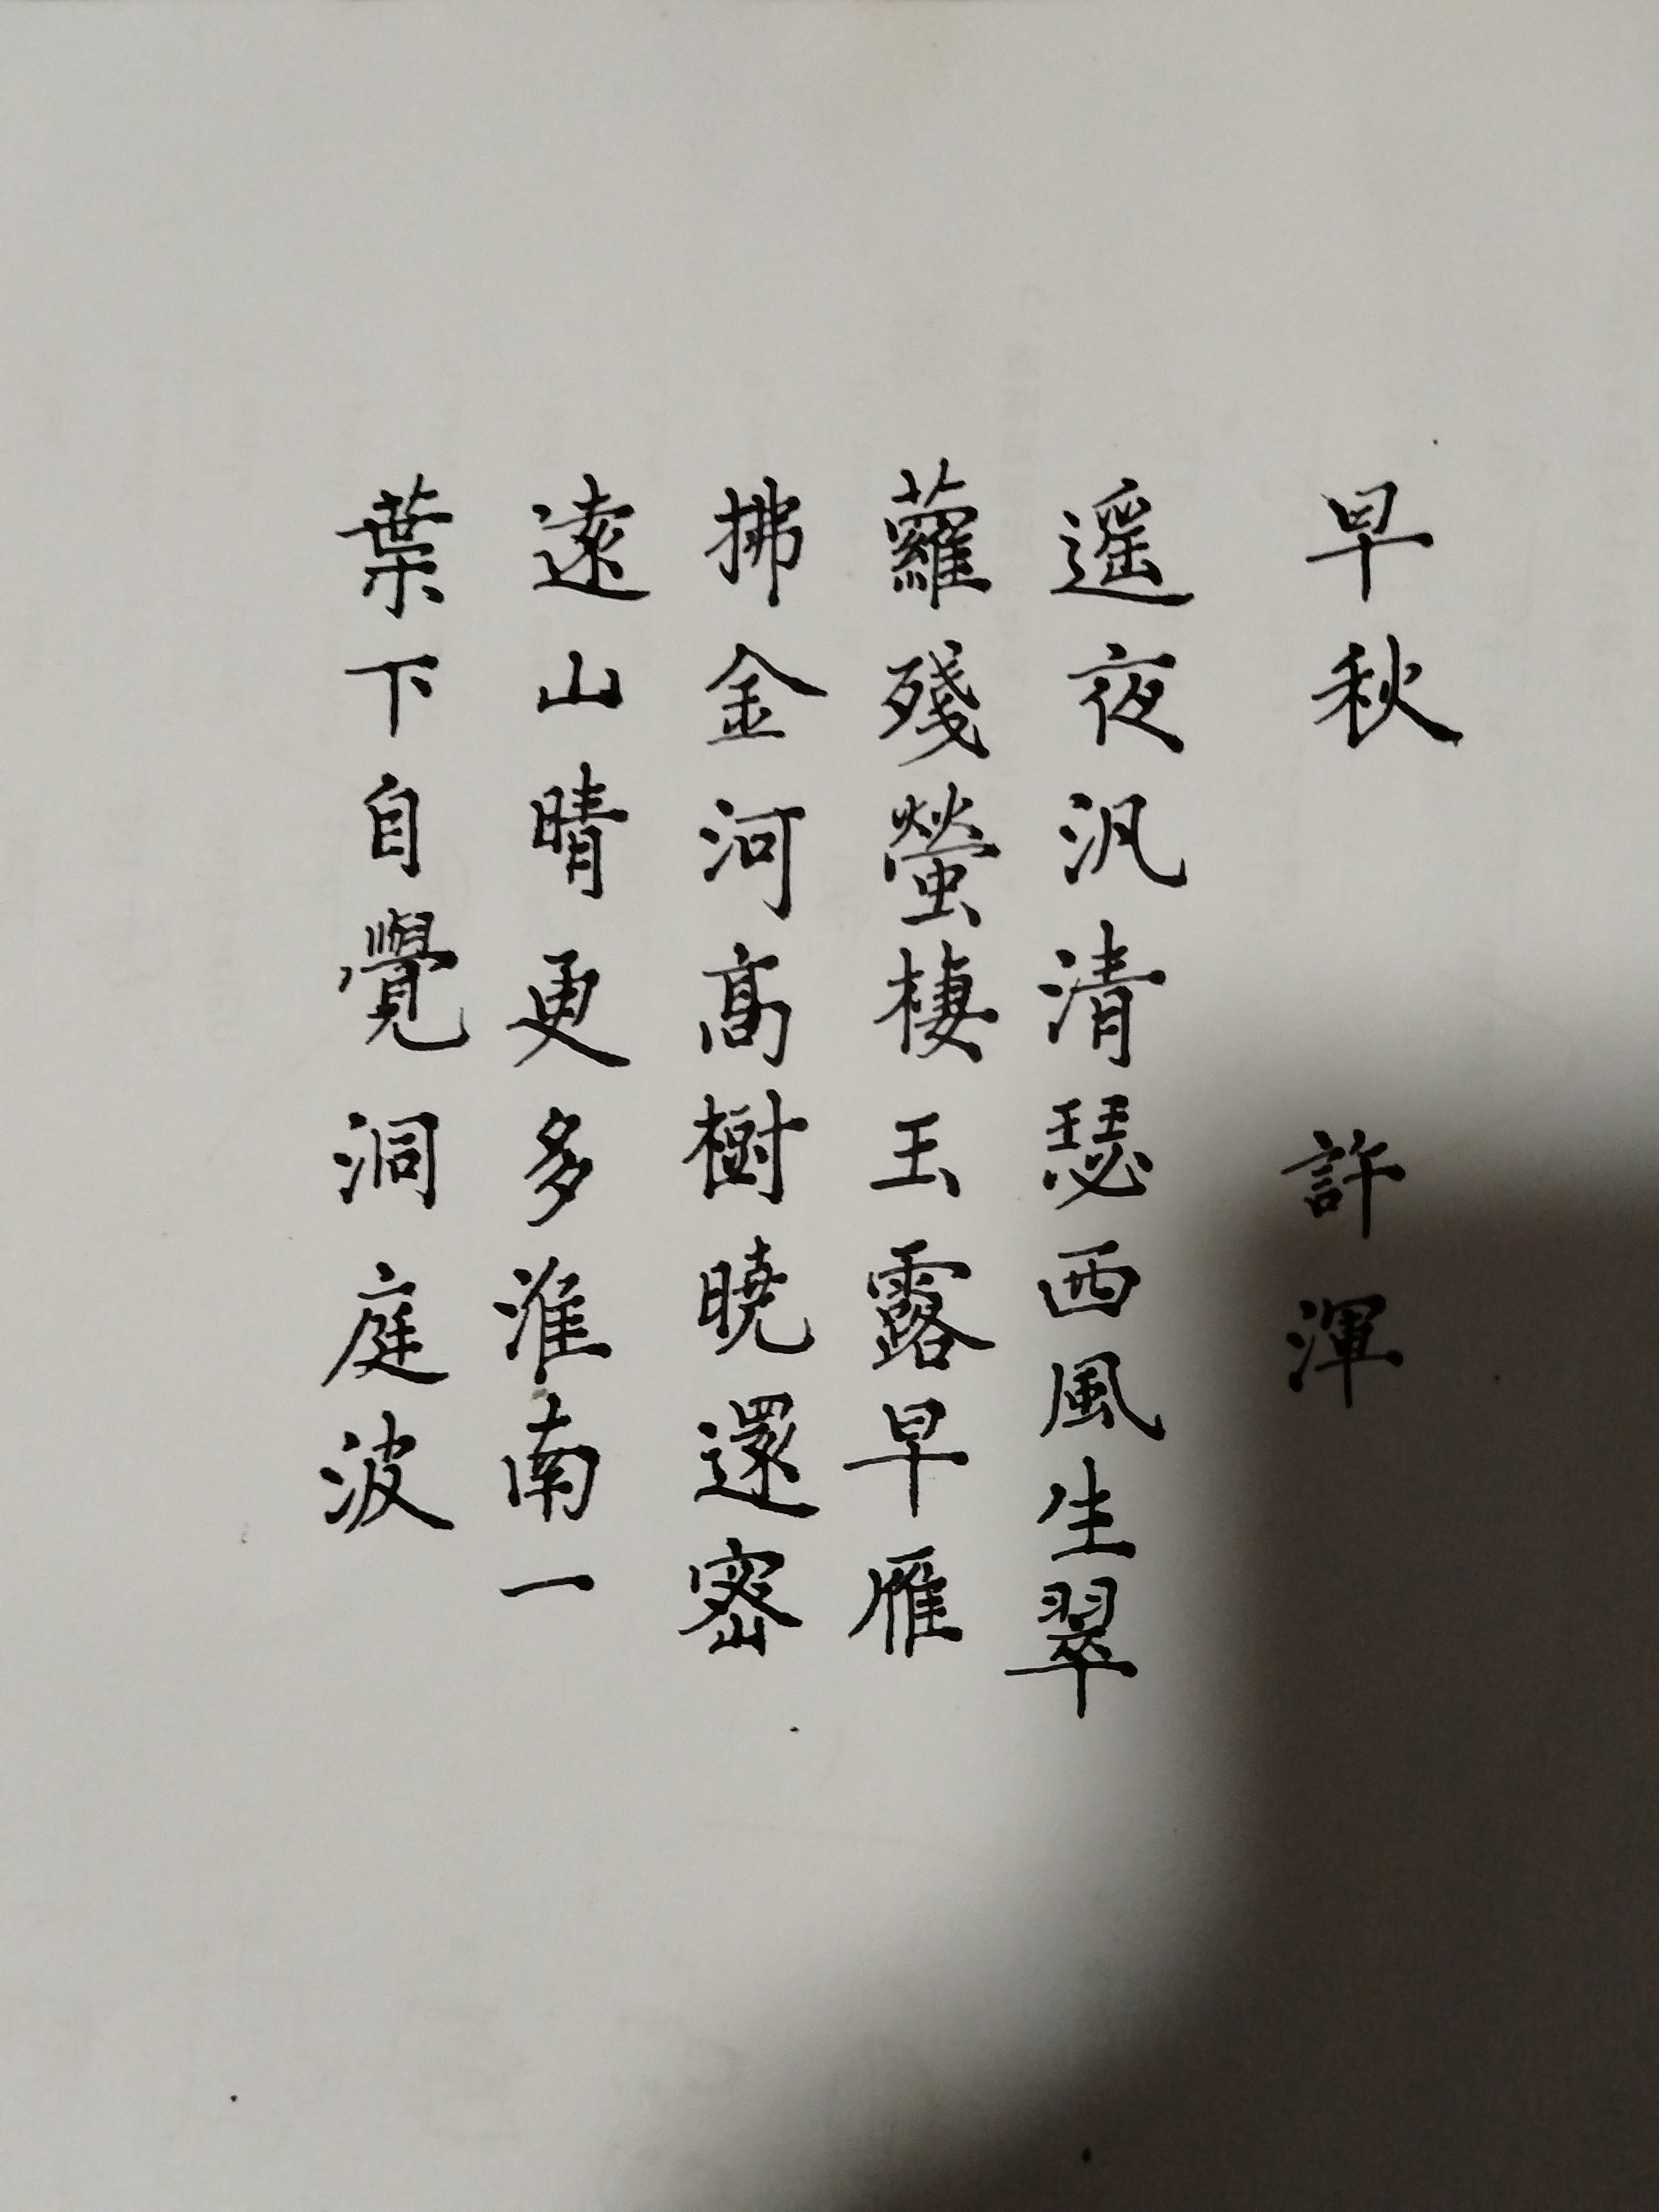 早秋 許渾
遥夜汎清瑟西風生翠
蘿殘螢棲玉露早雁
拂金河高樹曉還密
遠山晴更多淮南一
葉下自覺洞庭波